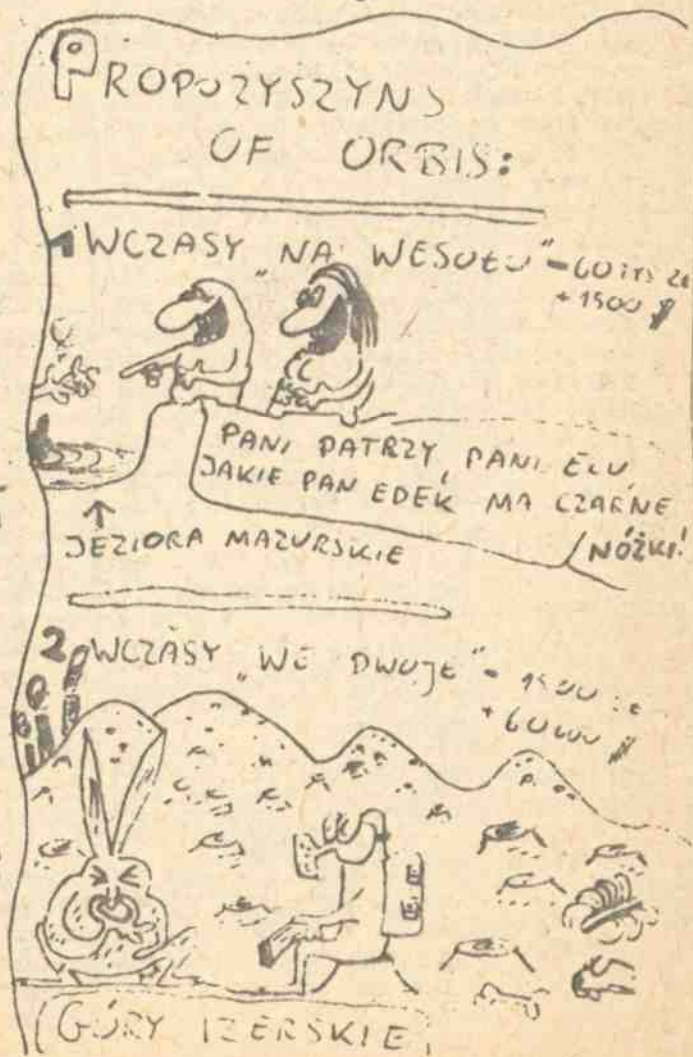 PROPOZYSZYNS
OF ORBIS:
1 WCZASY "NA WESOŁO" - 60 tys zł
+ 1500 $
PANI PATRZY, PANI ELU,
JAKIE PAN EDEK MA CZARNE
NÓŻKI!
↑
JEZIORA MAZURSKIE
2 WCZASY "WE DWOJE" - 1500 zł
+ 60000 $
GÓRY IZERSKIE